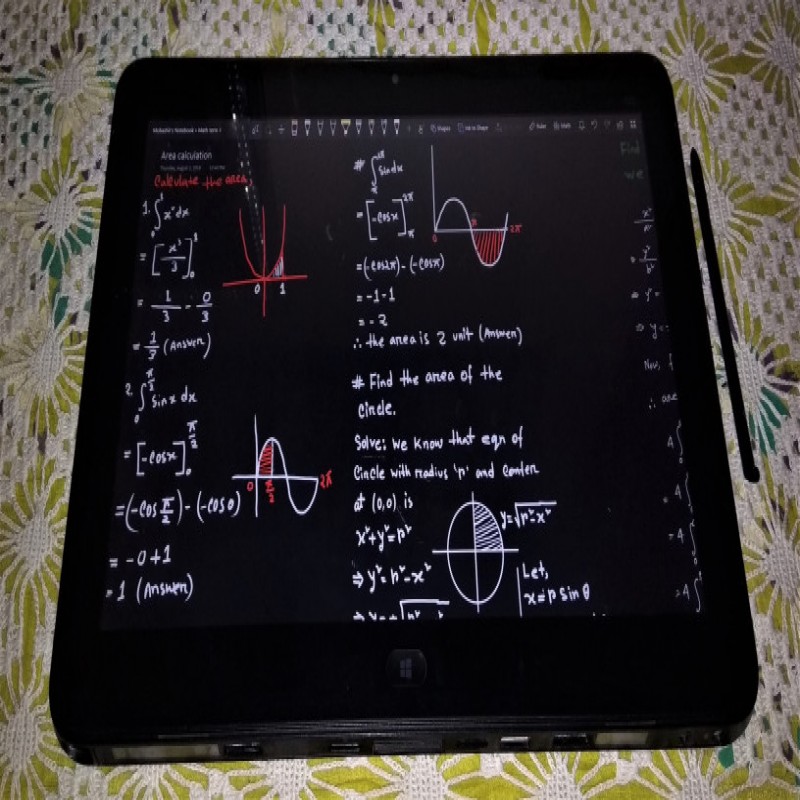 Area calculation
Calculate the area
1. ∫₀¹ x² dx
= [x³/3]₀¹
= 1/3 - 0/3
= 1/3 (Answer)
0 1
2. ∫₀^(π/2) sin x dx
= [-cosx]₀^(π/2)
= (-cos π/2) - (-cos 0)
= -0+1
= 1 (Answer)
0 π/2 2π
# ∫ sin dx
= [-cosx]
= (-cos2π) - (-cosπ)
= -1-1
= -2
∴ the area is 2 unit (Answer)
0 π 2π
# Find the area of the
Circle.
Solve: We know that eqn of
Circle with radius 'r' and center
at (0,0) is
x²+y²=r²
⇒ y²=r²-x²
y=√r²-x²
Let,
x=r sin θ
Find
we